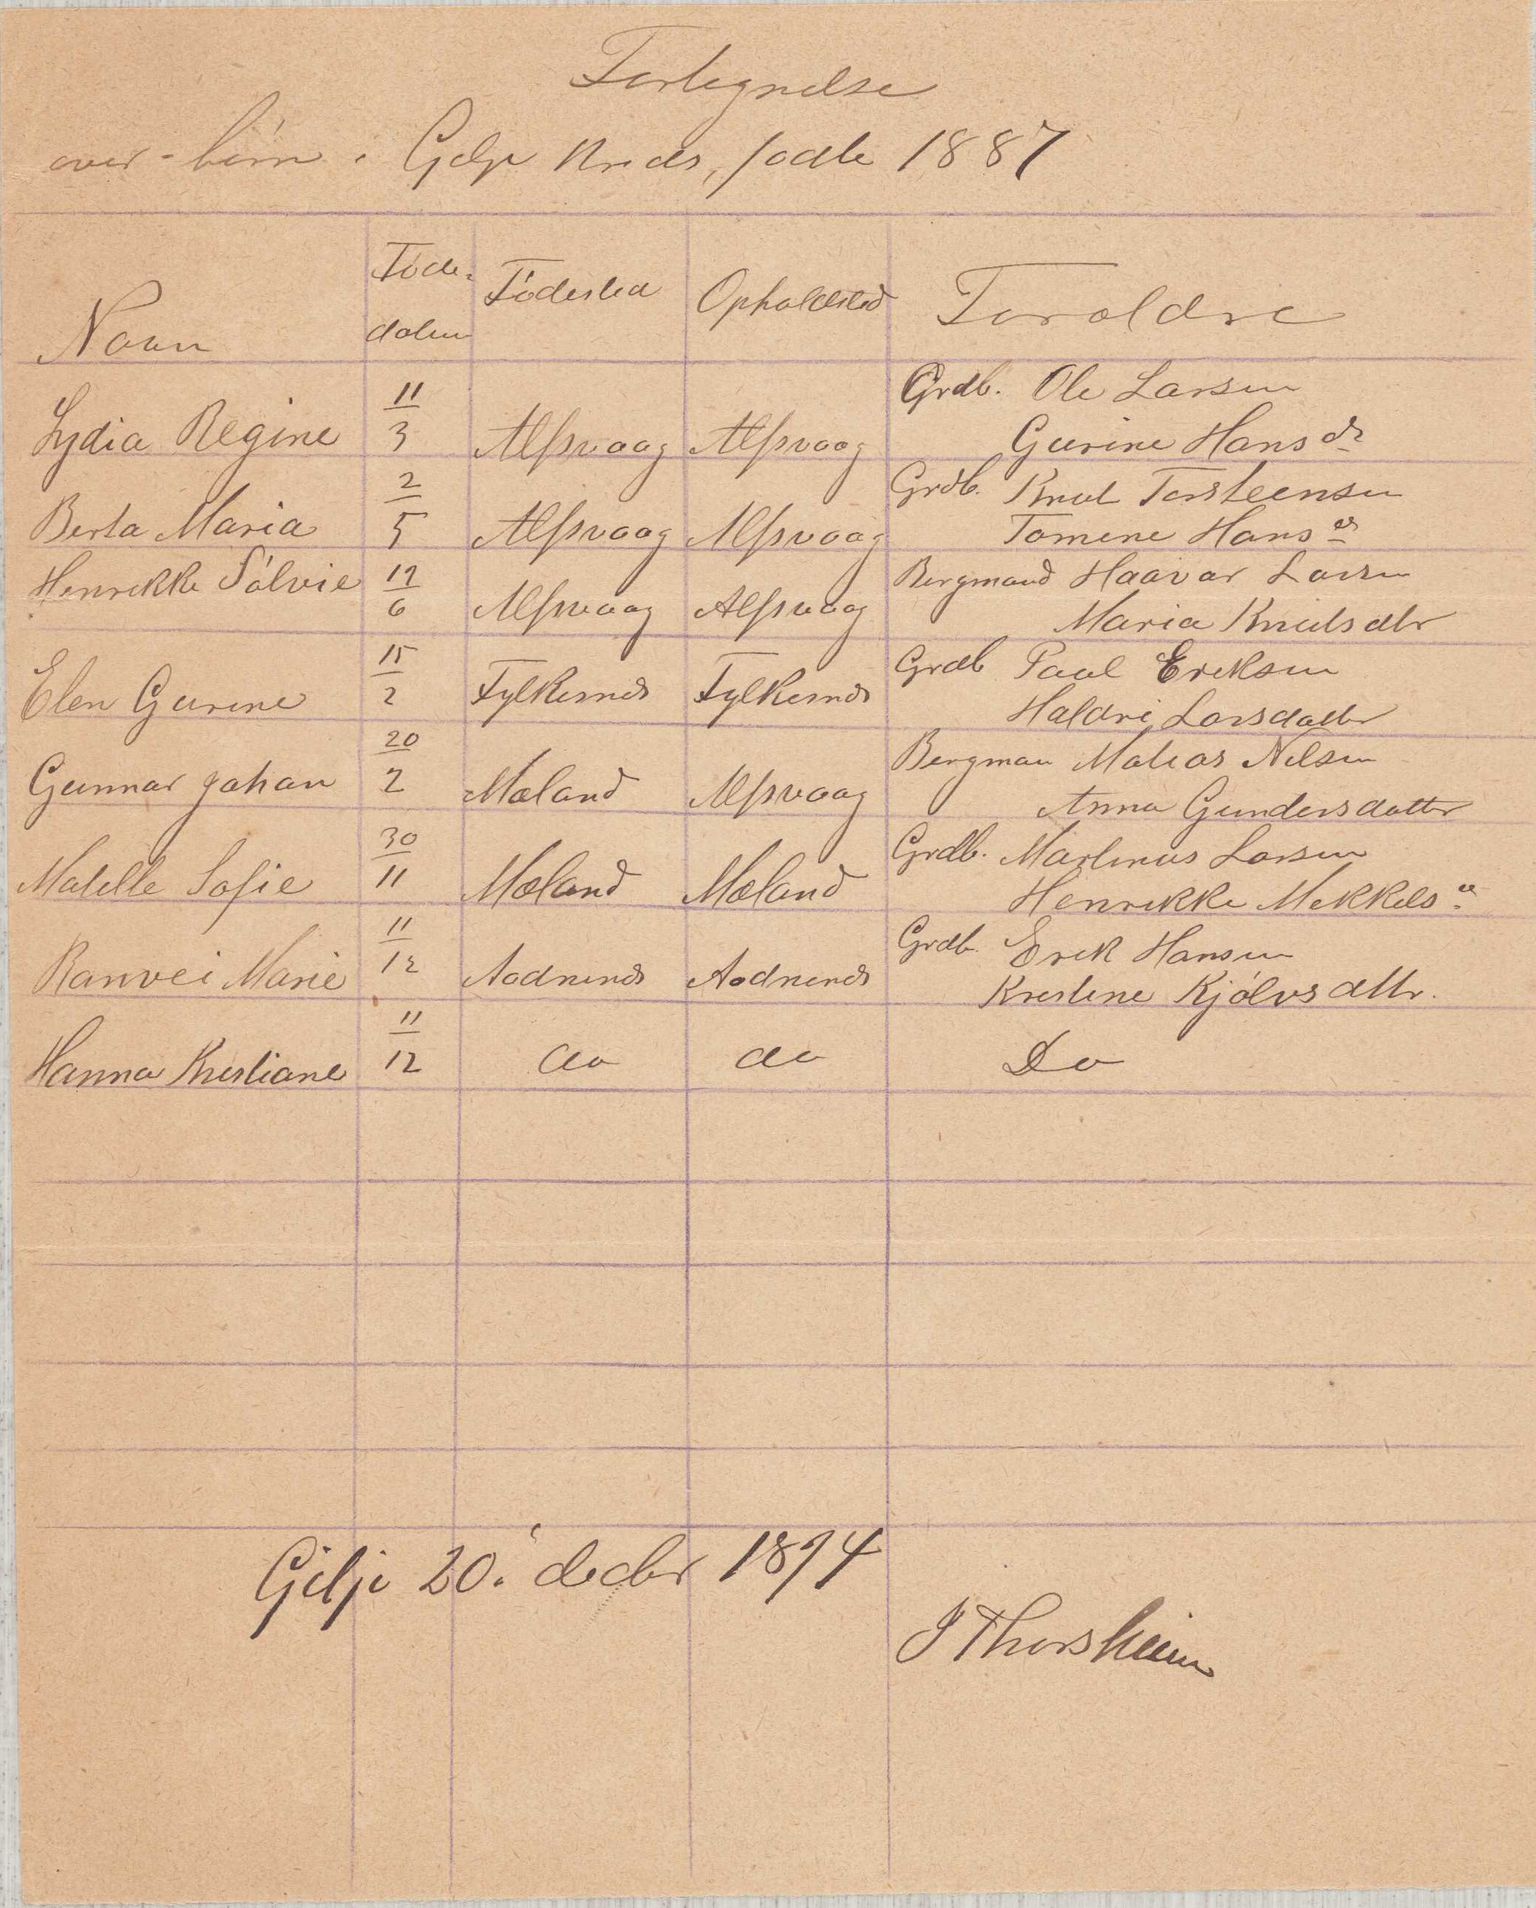 Fortegnelse
over börn i Gilje Kreds, födte 1887
Navn
Føde-
datum
Fødested
Opholdsted
Foroldre
Lydia Regine 11/3 Alfsvaag Alfsvaag Grdb. Ole Larsen
Gurine Hansdr
Berta Maria 2/5 Alfsvaag Alfsvaag Grdb. Knut Torsteensen
Tomine Hansdr
Henrikke Sølvie 12/6 Alfsvaag Alfsvaag Bergmand Haavar Larsen
Maria Knutsdtr
Elen Gurine 15/2 Fylkesnes Fylkesnes Grdb Paul Eriksen
Haldri Larsdatter
Gunnar Johan 20/2 Mæland Alfsvaag Bergman Matias Nilsen
Anna Gundersdatter
Matille Sofie 30/11 Mæland Mæland Grdb. Martinus Larsen
Henrikke Mikkelsdr
Ranvei Marie 11/12 Aadnenes Aadnenes Grdb. Erik Hansen
Kristine Kjølvsdttr.
Hanna Kristiane 11/12 do do Do
Gilje 20. decbr 1894
J Thorsheim